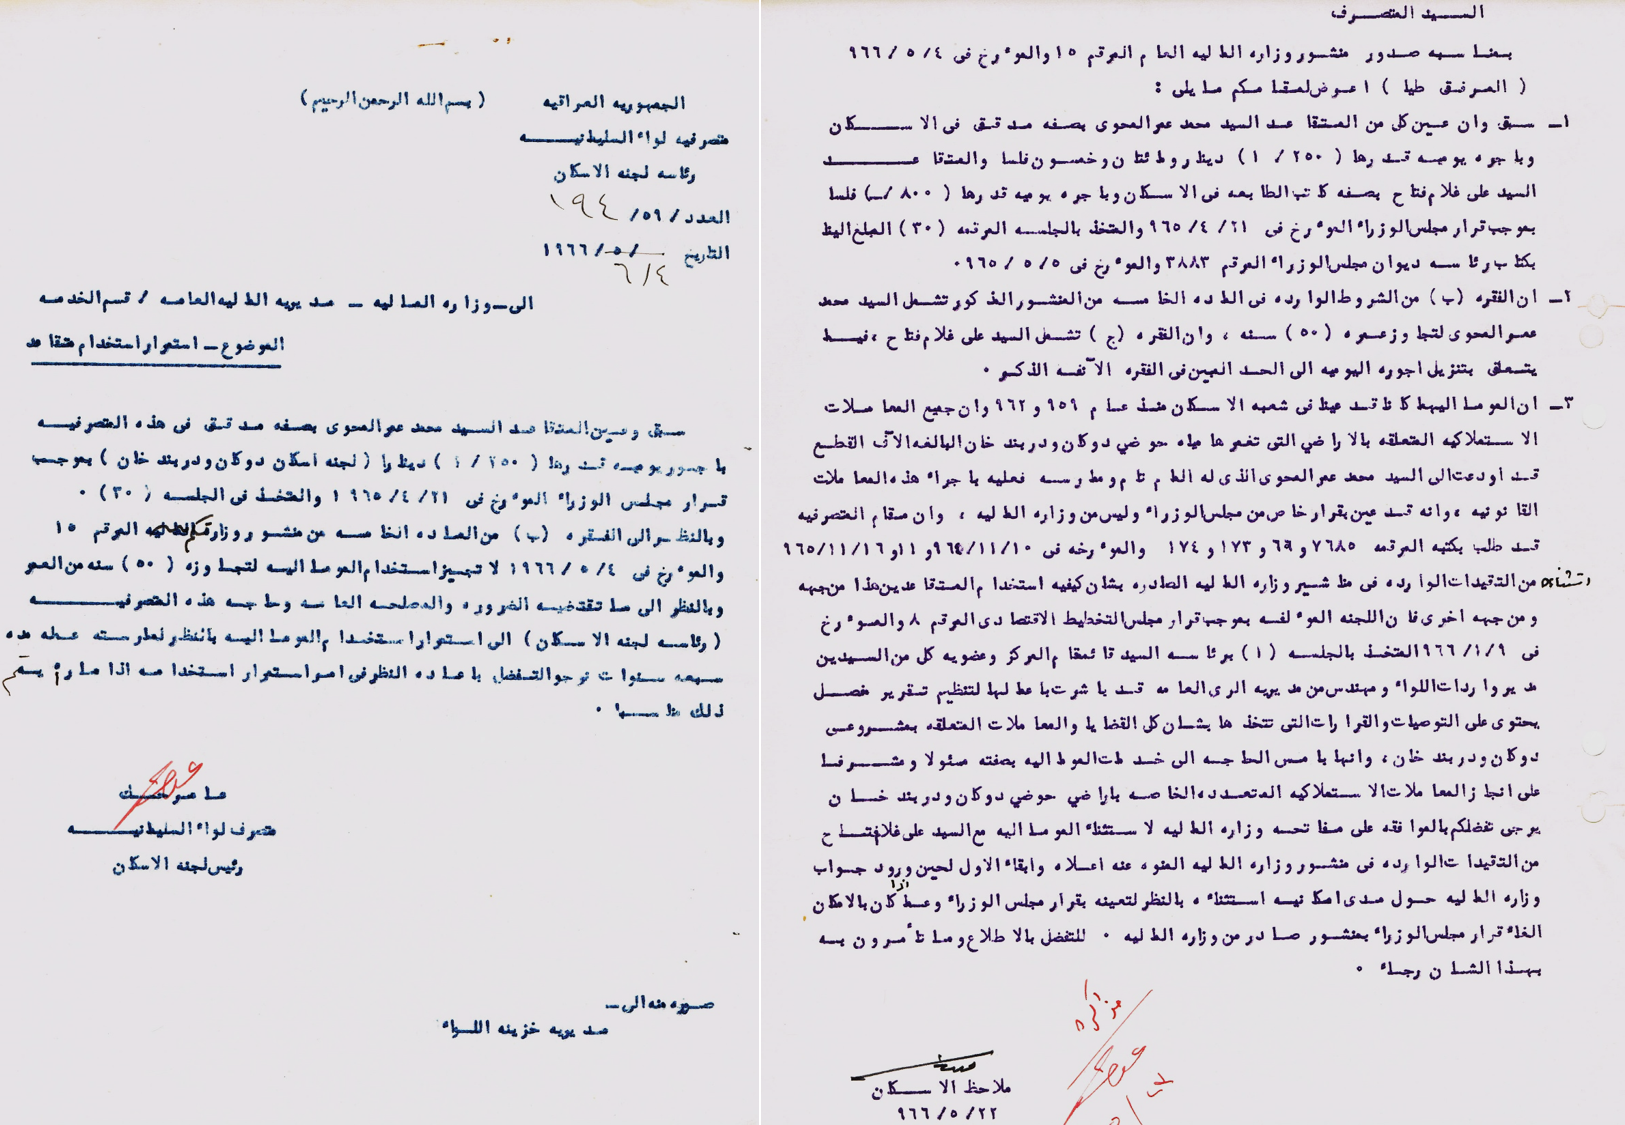 الجمهوريه العراقيه ( بسم الله الرحمن الرحيم )
متصرفيه لواء السليمانيـــــه
رئاسه لجنه الاسكان
العدد / ٥٩/ ١٩٤
التاريخ / ٥/ ١٩٦٦
٦/٤
الى ــ وزاره الماليه ــ مديريه الماليه العامه / قسم الخدمه
الموضوع ــ استمرار استخدام متقاعد
سبق وعين المتقاعد السيد محمد عمر المحوى بصفه مدقق فى هذه المتصرفيـــه
باجور يوميه قدرها ( ٢٥٠ / ١ ) دينارا ( لجنه اسكان دوكان ودربند خان ) بموجـب
قـرار مجلس الوزراء المؤرخ فى ٢١ /٤ /١٩٦٥ والمتخذ فى الجلسه ( ٣٠ ) ٠
وبالنظر الى الفقره ( ب ) من الماده الخامسه من منشور وزارتكم الماليه المرقم ١٥
والمؤرخ فى ٤ /٥ /١٩٦٦ لا تجيز استخدام المومااليه لتجاوزه ( ٥٠ ) سنه من العمر
وبالنظر الى ما تقتضيه الضروره والمصلحه العامه وحاجه هذه المتصرفيـــــه
( رئاسه لجنه الاسكان ) الى استمرار استخدام المومااليه بالنظر لممارسته عمله مده
سبعه سنوات نرجو التفضل باعاده النظر فى امر استمرار استخدامه اذا ما رأيتم
ذلك مناسبا ٠
متصرف لواء السليمانيـــــه
رئيس لجنه الاسكان
صوره منه الى ــ
مديريه خزينه اللــواء
الســـيد المتصـــرف
بمناسبه صدور منشور وزاره الماليه العام المرقم ١٥ والمؤرخ فى ٤ /٥ /٩٦٦
( المرفق طيا ) اعرض لمقامكم مايلى :
١ــ سبق وان عـين كل من المتقاعد السيد محمد عمر المحوى بصفه مدقـق فى الاســـكان
وباجره يوميـه قـدرها ( ٢٥٠ / ١ ) دينار ومائتان وخمسون فلسا والمتقاعـــــد
السيد على غلام فتاح بصفه كاتب الطابعه فى الاسكان وباجره يوميه قدرها ( ٨٠٠ /ــ ) فلسا
بموجب قرار مجلس الوزراء المؤرخ فى ٢١ /٤ /٩٦٥ والمتخذ بالجلسه المرقمه ( ٣٠ ) المبلغ الينا
بكتاب رئاسه ديوان مجلس الوزراء المرقم ٣٨٨٣ والمؤرخ فى ٥ /٥ /٩٦٥ ٠
٢ــ ان الفقره ( ب ) من الشروط الوارده فى الماده الخامسه من المنشور المذكور تشمل السيد محمد
عمر المحوى لتجاوز عمره ( ٥٠ ) سنه ، وان الفقره ( ج ) تشمل السيد على غلام فتاح ، فيما
يتعلق بتنزيل اجوره اليوميه الى الحد المبين فى الفقره الآنفه الذكر ٠
٣ــ ان المومااليهما كانا قد عينا فى شعبه الاسكان منذ عام ٩٥٩ و ٩٦٢ وان جميع المعاملات
الاستملاكيه المتعلقه بالاراضي التى تغمرها مياه حوضي دوكان ودربند خان البالغه الآف القطـع
قـد اودعت الى السيد محمد عمر المحوى الذى له المام تام وممارسه فعليه باجراء هذه المعاملات
القانونيه ، وانه قـد عين بقرار خاص من مجلس الوزراء وليس من وزاره الماليه ، وان مقام المتصرفيه
قـد طلب بكتبه المرقمه ٧٦٨٥ و ٦٩ و ١٧٣ و ١٧٤ والمؤرخه فى ١٠ /١١ /٩٦٤ و ١١ و ٩٦٥/١١/١٦
استثناءه من التقيدات الوارده فى مناشير وزاره الماليه الصادره بشان كيفيه استخدام المتقاعدين هذا من جهه
ومن جهه اخرى فان اللجنه المؤلفه بموجب قرار مجلس التخطيط الاقتصادى المرقم ٨ والمـؤرخ
فى ٩ /١ /٩٦٦ المتخذ بالجلسه ( ١ ) برئاسه السيد قائمقام المركز وعضويه كل من السيدين
مدير واردات اللواء ومهندس من مديريه الرى العامه قـد باشرت باعمالها لتنظيم تقرير مفصـل
يحتوى على التوصيات والقرارات التى تتخذها بشان كل القضايا والمعاملات المتعلقه بمشروعـى
دوكان ودربند خان ، وانها بامس الحاجـه الى خـدمات المومااليه بصفته مسئولا ومشـرفـا
على انجاز المعاملات الاستملاكيه المتعـدده الخاصه باراضي حوضي دوكان ودربند خـان
يرجى تفضلكم بالموافقه على مفاتحه وزاره الماليه لاستثناء المومااليه مع السيد على غلام فتـاح
من التقيدات الوارده فى منشور وزاره الماليه المنوه عنه اعلاه وابقاء الاول لحين ورود جواب
وزاره الماليه حـول مدى امكانيه استثناءه بالنظر لتعينه بقرار مجلس الوزراء وعما اذا كان بالامكان
الغاء قرار مجلس الوزراء بمنشور صادر من وزاره الماليه ٠ للتفضل بالاطلاع وما تأمرون بـه
بهـذا الشان رجـاء ٠
ملاحظ الاســـكان
٢٢ /٥ /٩٦٦